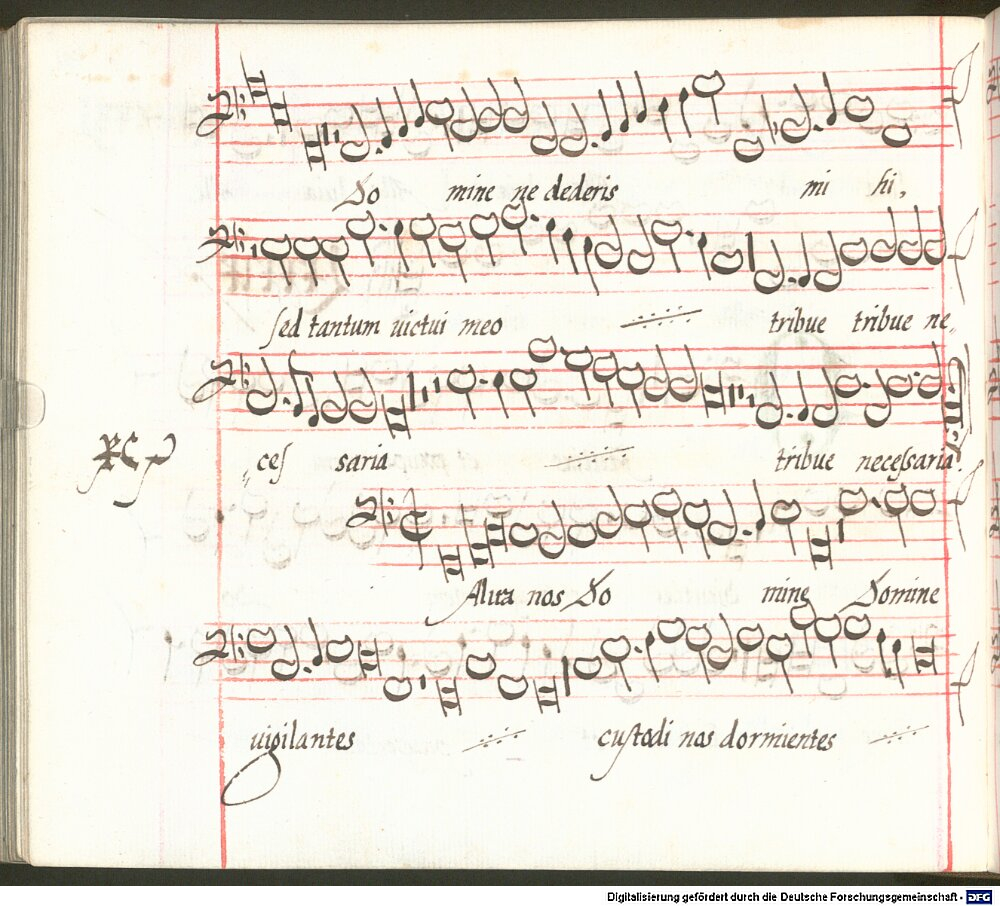 Do mine ne dederis mi hi,
sed tantum uictui meo tribue tribue ne,
ces saria tribue necessaria.
Salua nos Do mine Domine
uigilantes custodi nos dormientes
Digitalisierung gefördert durch die Deutsche Forschungsgemeinschaft - DFG